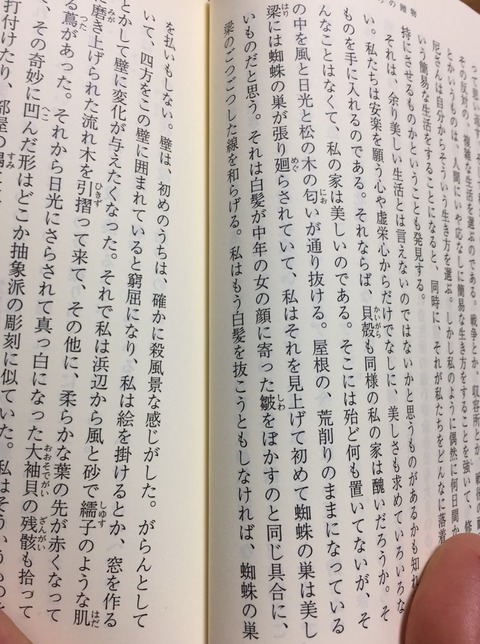 の雑物
その反対の、複雑な生活を選ぶのである。戦争とか、収容所とか、
とかいうものは、人間にいや応なしに簡易な生き方をすることを強いて、修
尼さんは自分からそういう生き方を選ぶ。しかし私のように偶然に何日間か
いう簡易な生活をすることになると、同時に、それが私たちをどんなに落着
持にさせるものかということも発見する。
それは、余り美しい生活とは言えないのではないかと思うものがあるかも知れ
い。私たちは安楽を願う心や虚栄心からだけでなしに、美しさも求めていろいろな
ものを手に入れるのである。それならば、貝殻も同様の私の家は醜いだろうか。そ
んなことはなくて、私の家は美しいのである。そこには殆ど何も置いてないが、そ
の中を風と日光と松の木の匂いが通り抜ける。屋根の、荒削りのままになっている
梁には蜘蛛の巣が張り廻らされていて、私はそれを見上げて初めて蜘蛛の巣は美し
いものだと思う。それは白髪が中年の女の顔に寄った皺をぼかすのと同じ具合に、
梁のごつごつした線を和らげる。私はもう白髪を抜こうともしなければ、蜘蛛の巣
を払いもしない。壁は、初めのうちは、確かに殺風景な感じがした。がらんとして
いて、四方をこの壁に囲まれていると窮屈になり、私は絵を掛けるとか、窓を作る
とかして壁に変化が与えたくなった。それで私は浜辺から風と砂で繻子のような肌
に磨き上げられた流れ木を引摺って来て、その他に、柔らかな葉の先が赤くなって
る蔦があった。それから日光にさらされて真っ白になった大袖貝の残骸も拾って
、その奇妙に凹んだ形はどこか抽象派の彫刻に似ていた。私はそういうものを
打付けたり、部屋の隅